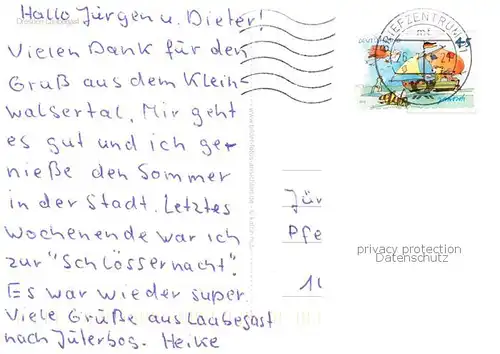 Hallo Jürgen u. Dieter!
Vielen Dank für den
Gruß aus dem Klein-
walsertal. Mir geht
es gut und ich ge-
nieße den Sommer
in der Stadt. Letztes
Wochenende war ich
zur "Schlössernacht".
Es war wieder super.
Viele Grüße aus Laubegast
nach Jüterbog. Heike
BRIEFZENTRUM
mt
45
Jür
Pfe
privacy protection
Datenschutz